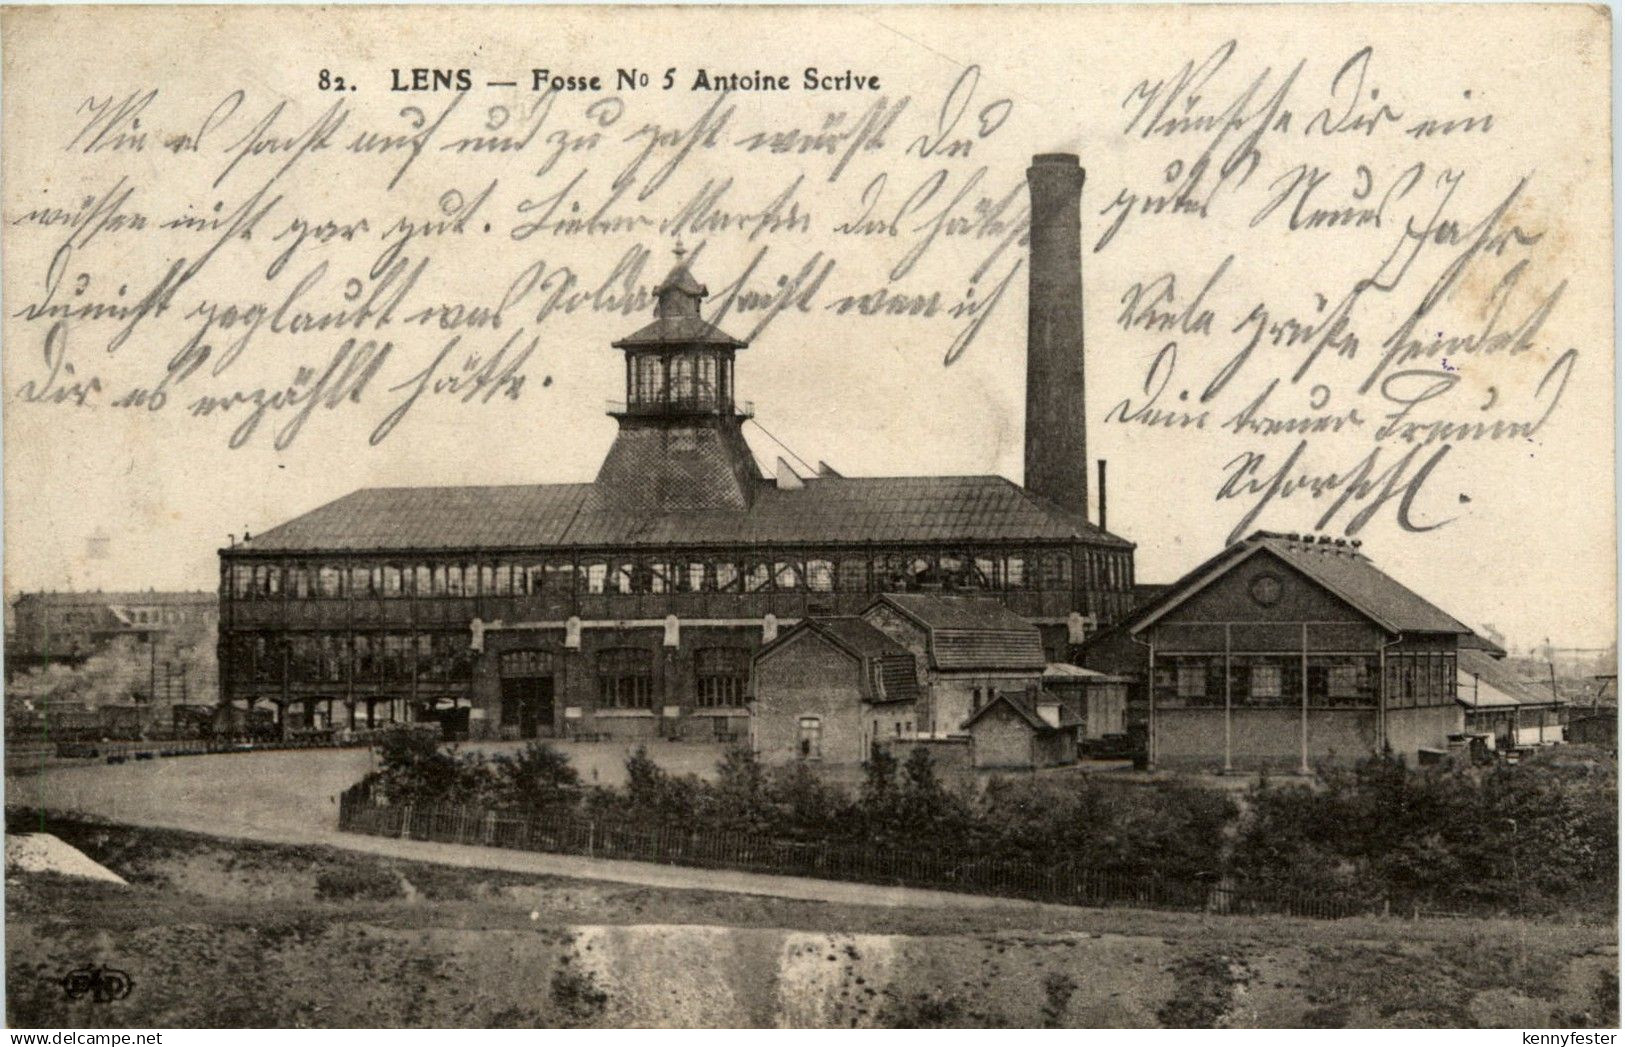 82. LENS — Fosse No 5 Antoine Scrive
Wie es sonst auf und zu geht würst Du
wüssen nicht gar gut. Lieber Martin das hätest
Du nicht geglaubt was Soldat heist wen ich
Dir es erzählt hätte.
Wünsche Dir ein
gutes Neues Jahr
Viele grüße sendet
Dein treuer Freund
Schorschl.
ELD
kennyfester